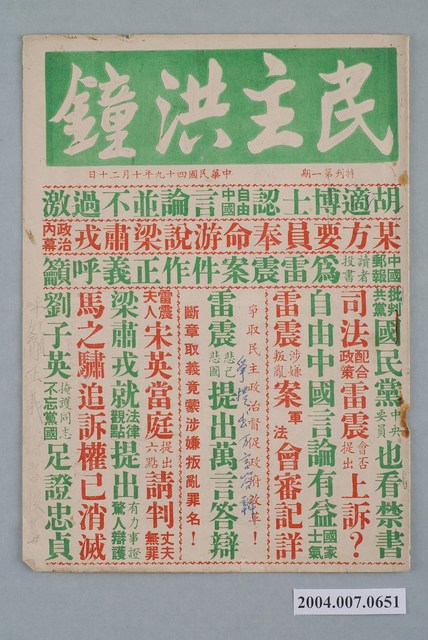 民主洪鐘
特刊第一期
中華民國四十九年十月二十日
胡適博士認自由中國言論並不過激
某方要員奉命游說梁肅戎政治內幕
中國郵報讀者投書為雷震案件作正義呼籲
批判共黨國民黨中央委員也看禁書
司法配合政策雷震會否提出上訴？
自由中國言論有益國家士氣
雷震涉嫌叛亂案軍法會審記詳
爭取民主政治督促政府改革！
雷震悲己悲國提出萬言答辯
斷章取義竟蒙涉嫌叛亂罪名！
雷震夫人宋英當庭提出六點請判丈夫無罪
梁肅戎就法律觀點提出有力事證驚人辯護
馬之驌追訴權已消滅
劉子英掩護同志不忘黨國足證忠貞
2004.007.0651